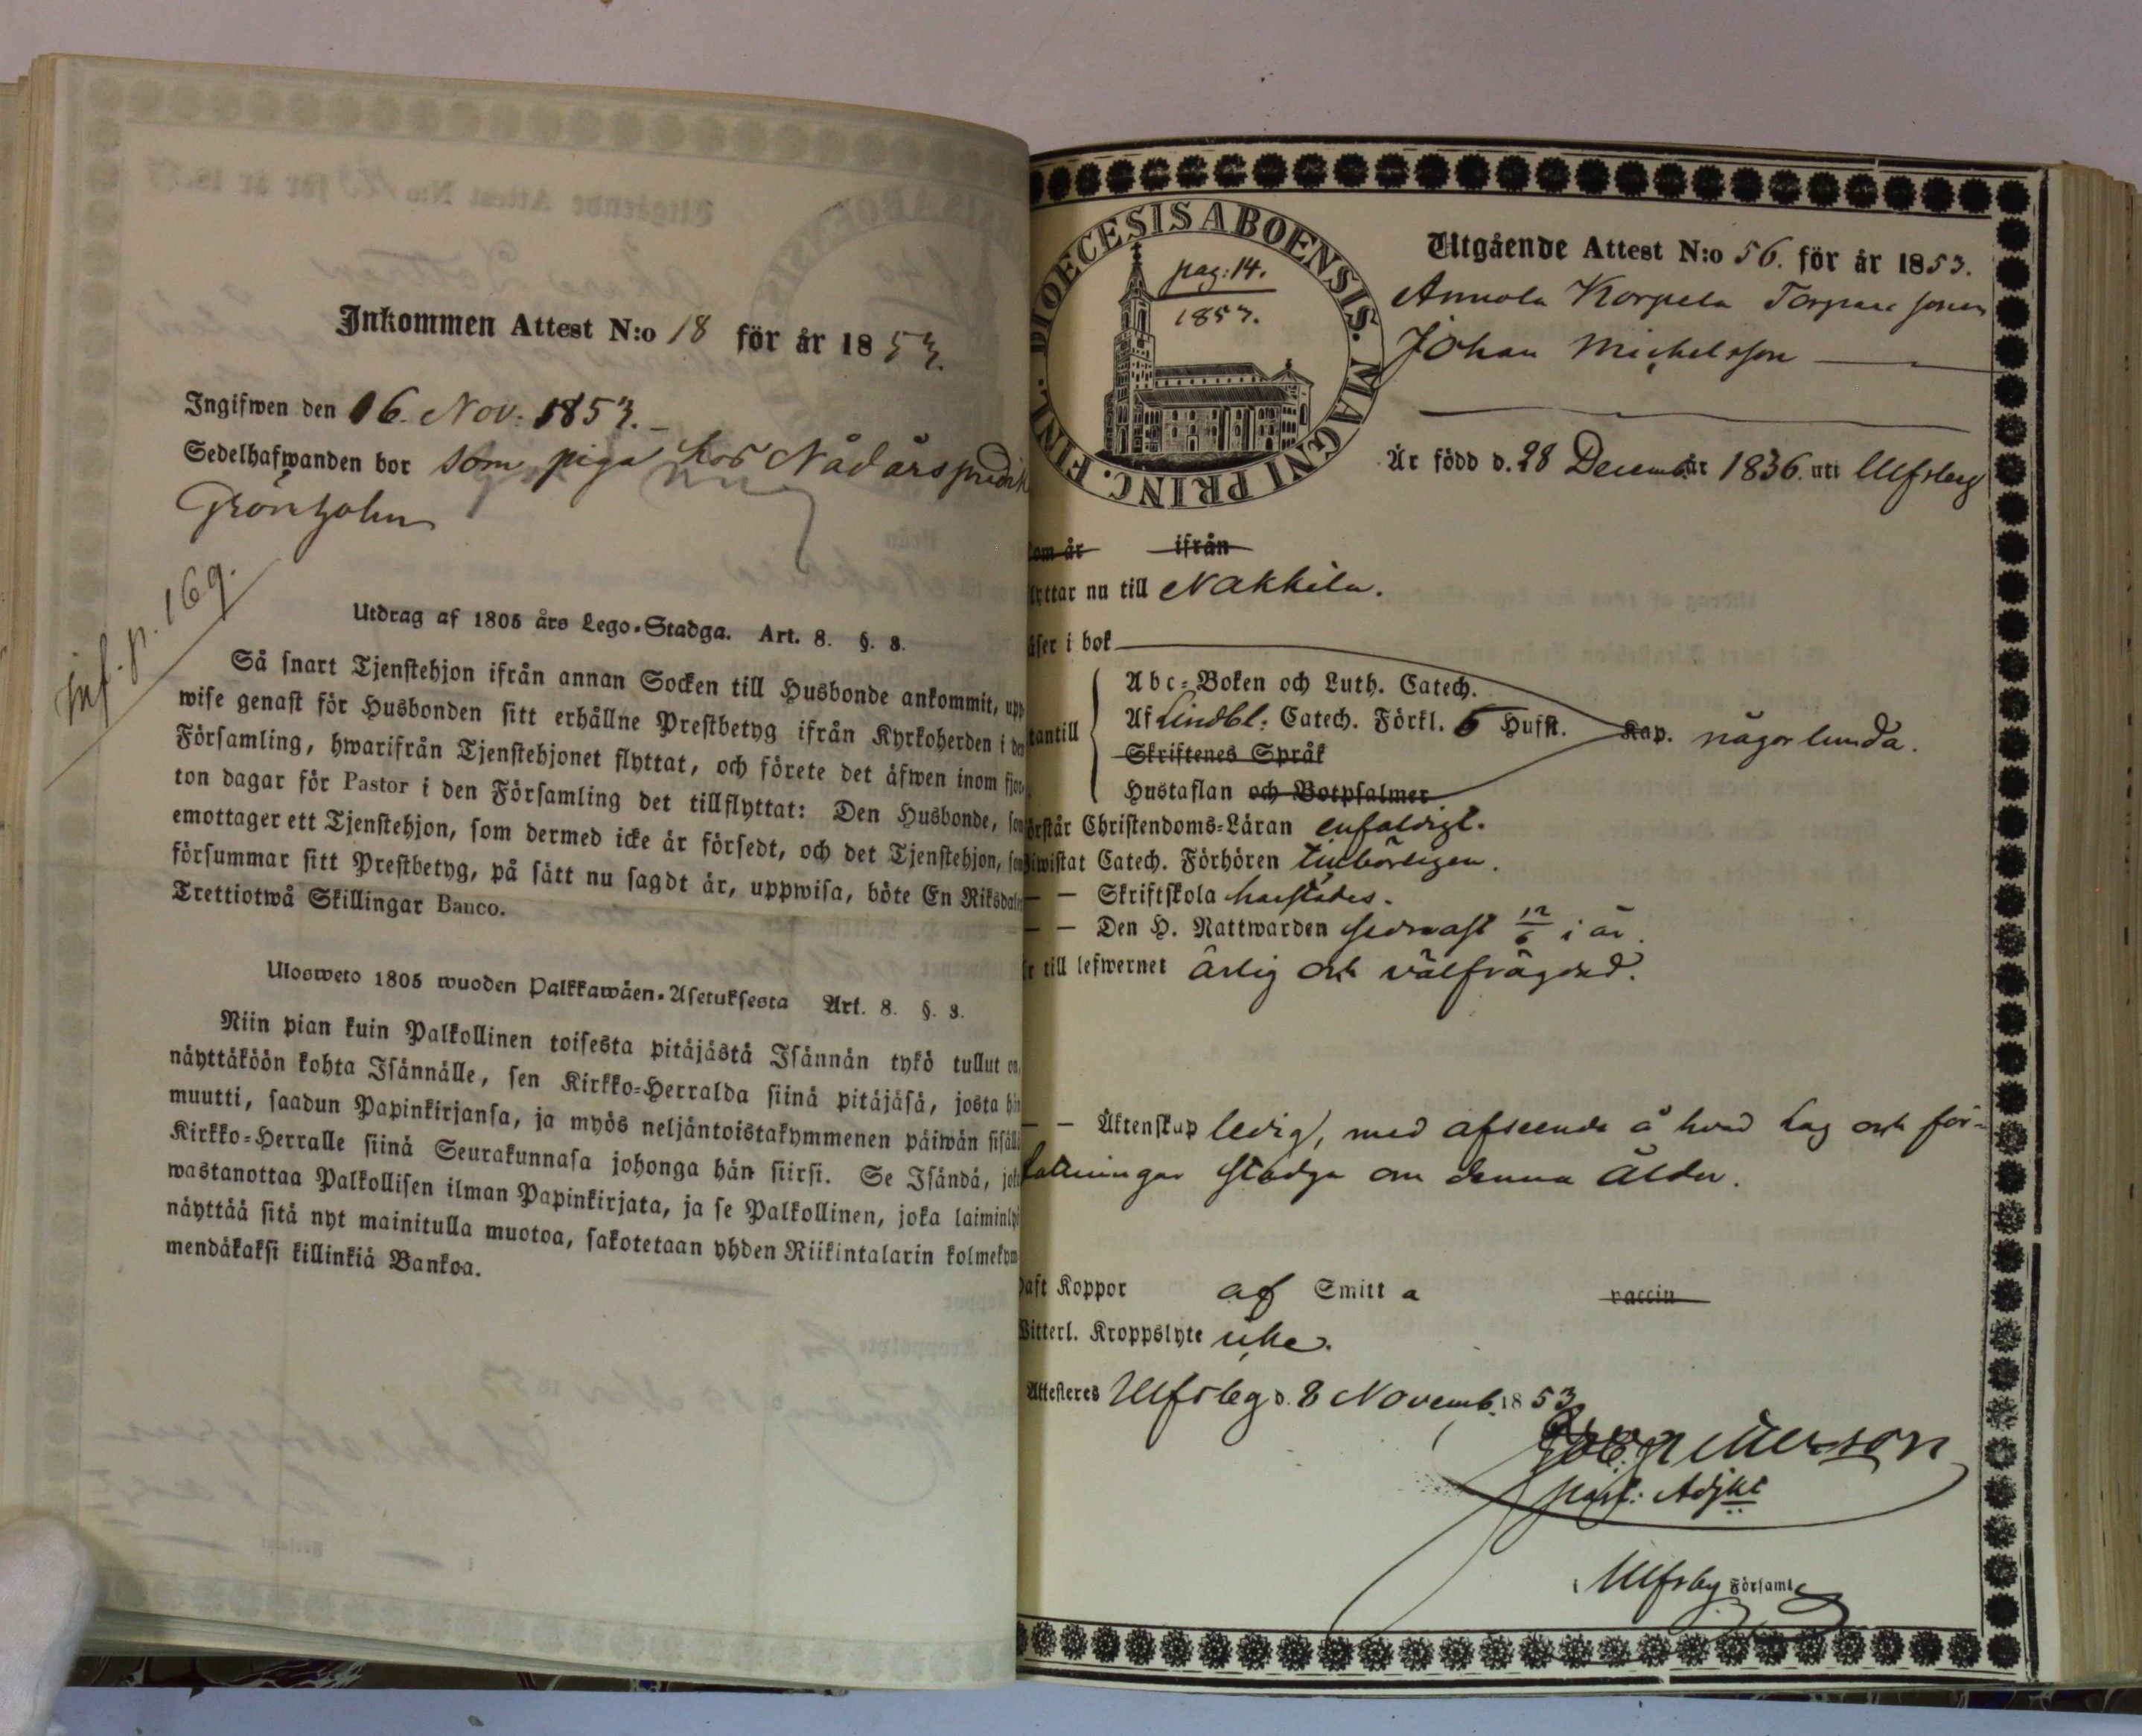 Inkommen Attest N:o 18 för år 1853.
Ingifwen den 16. Nov: 1853.
Sedelhafwanden bor som piga hos Nådårspredik
Grönholm
inf. p. 169.
Utdrag af 1805 års Lego-Stadga. Art. 8. §. 8.
Så snart Tjenstehjon ifrån annan Socken till Husbonde ankommit, upp-
wise genast för Husbonden sitt erhållne Prestbetyg ifrån Kyrkoherden i den
Församling, hwarifrån Tjenstehjonet flyttat, och förete det äfwen inom fjor-
ton dagar för Pastor i den Församling det tillflyttat: Den Husbonde, som
emottager ett Tjenstehjon, som dermed icke är försedt, och det Tjenstehjon, som
försummar sitt Prestbetyg, på sätt nu sagdt är, uppwisa, böte En Riksdaler
Trettiotwå Skillingar Banco.
Ulosweto 1805 wuoden Palkkawäen-Asetuksesta Art. 8. §. 8.
Niin pian kuin Palkollinen toisesta pitäjästä Isännän tykö tullut on,
näyttäköön kohta Isännälle, sen Kirkko-Herralda siinä pitäjäsä, josta hän
muutti, saadun Papinkirjansa, ja myös neljäntoistakymmenen päiwän sisällä
Kirkko-Herralle siinä Seurakunnasa johonga hän siirsi. Se Isändä, joka
wastanottaa Palkollisen ilman Papinkirjata, ja se Palkollinen, joka laiminlyö
näyttää sitä nyt mainitulla muotoa, sakotetaan yhden Riikintalarin kolmekym-
mendäkaksi killinkiä Bankoa.
DIOECESIS ABOENSIS. MAGNI PRINC. FINL.
pag: 14.
1853.
Utgående Attest N:o 56. för år 1853.
Annola Korpela Torpare sonen
Johan Michelsson
Är född d. 28 December 1836. uti Ulfsby
kom år ifrån
flyttar nu till Nakkila.
läser i bok
utantill
Abc-Boken och Luth. Catech.
Af Lindbl: Catech. Förkl. 5 Hufst. Kap. någorlunda.
Skriftenes Språk
Hustaflan och Botpsalmer
förstår Christendoms-Läran enfaldigt.
biwistat Catech. Förhören tillbörligen.
— — Skriftskola harstädes.
— — Den H. Nattwarden sednast 12/6 i år.
är till lefwernet ärlig och välfrägdad.
— — Äktenskap ledig, med afseende å hvad Lag och för-
fattningar stadga om denna ålder.
haft Koppor af Smitta vaccin
Witterl. Kroppslyte icke.
Attesteres Ulfsby d. 8 Novemb. 1853
past: Adjkt
i Ulfsby Församl.